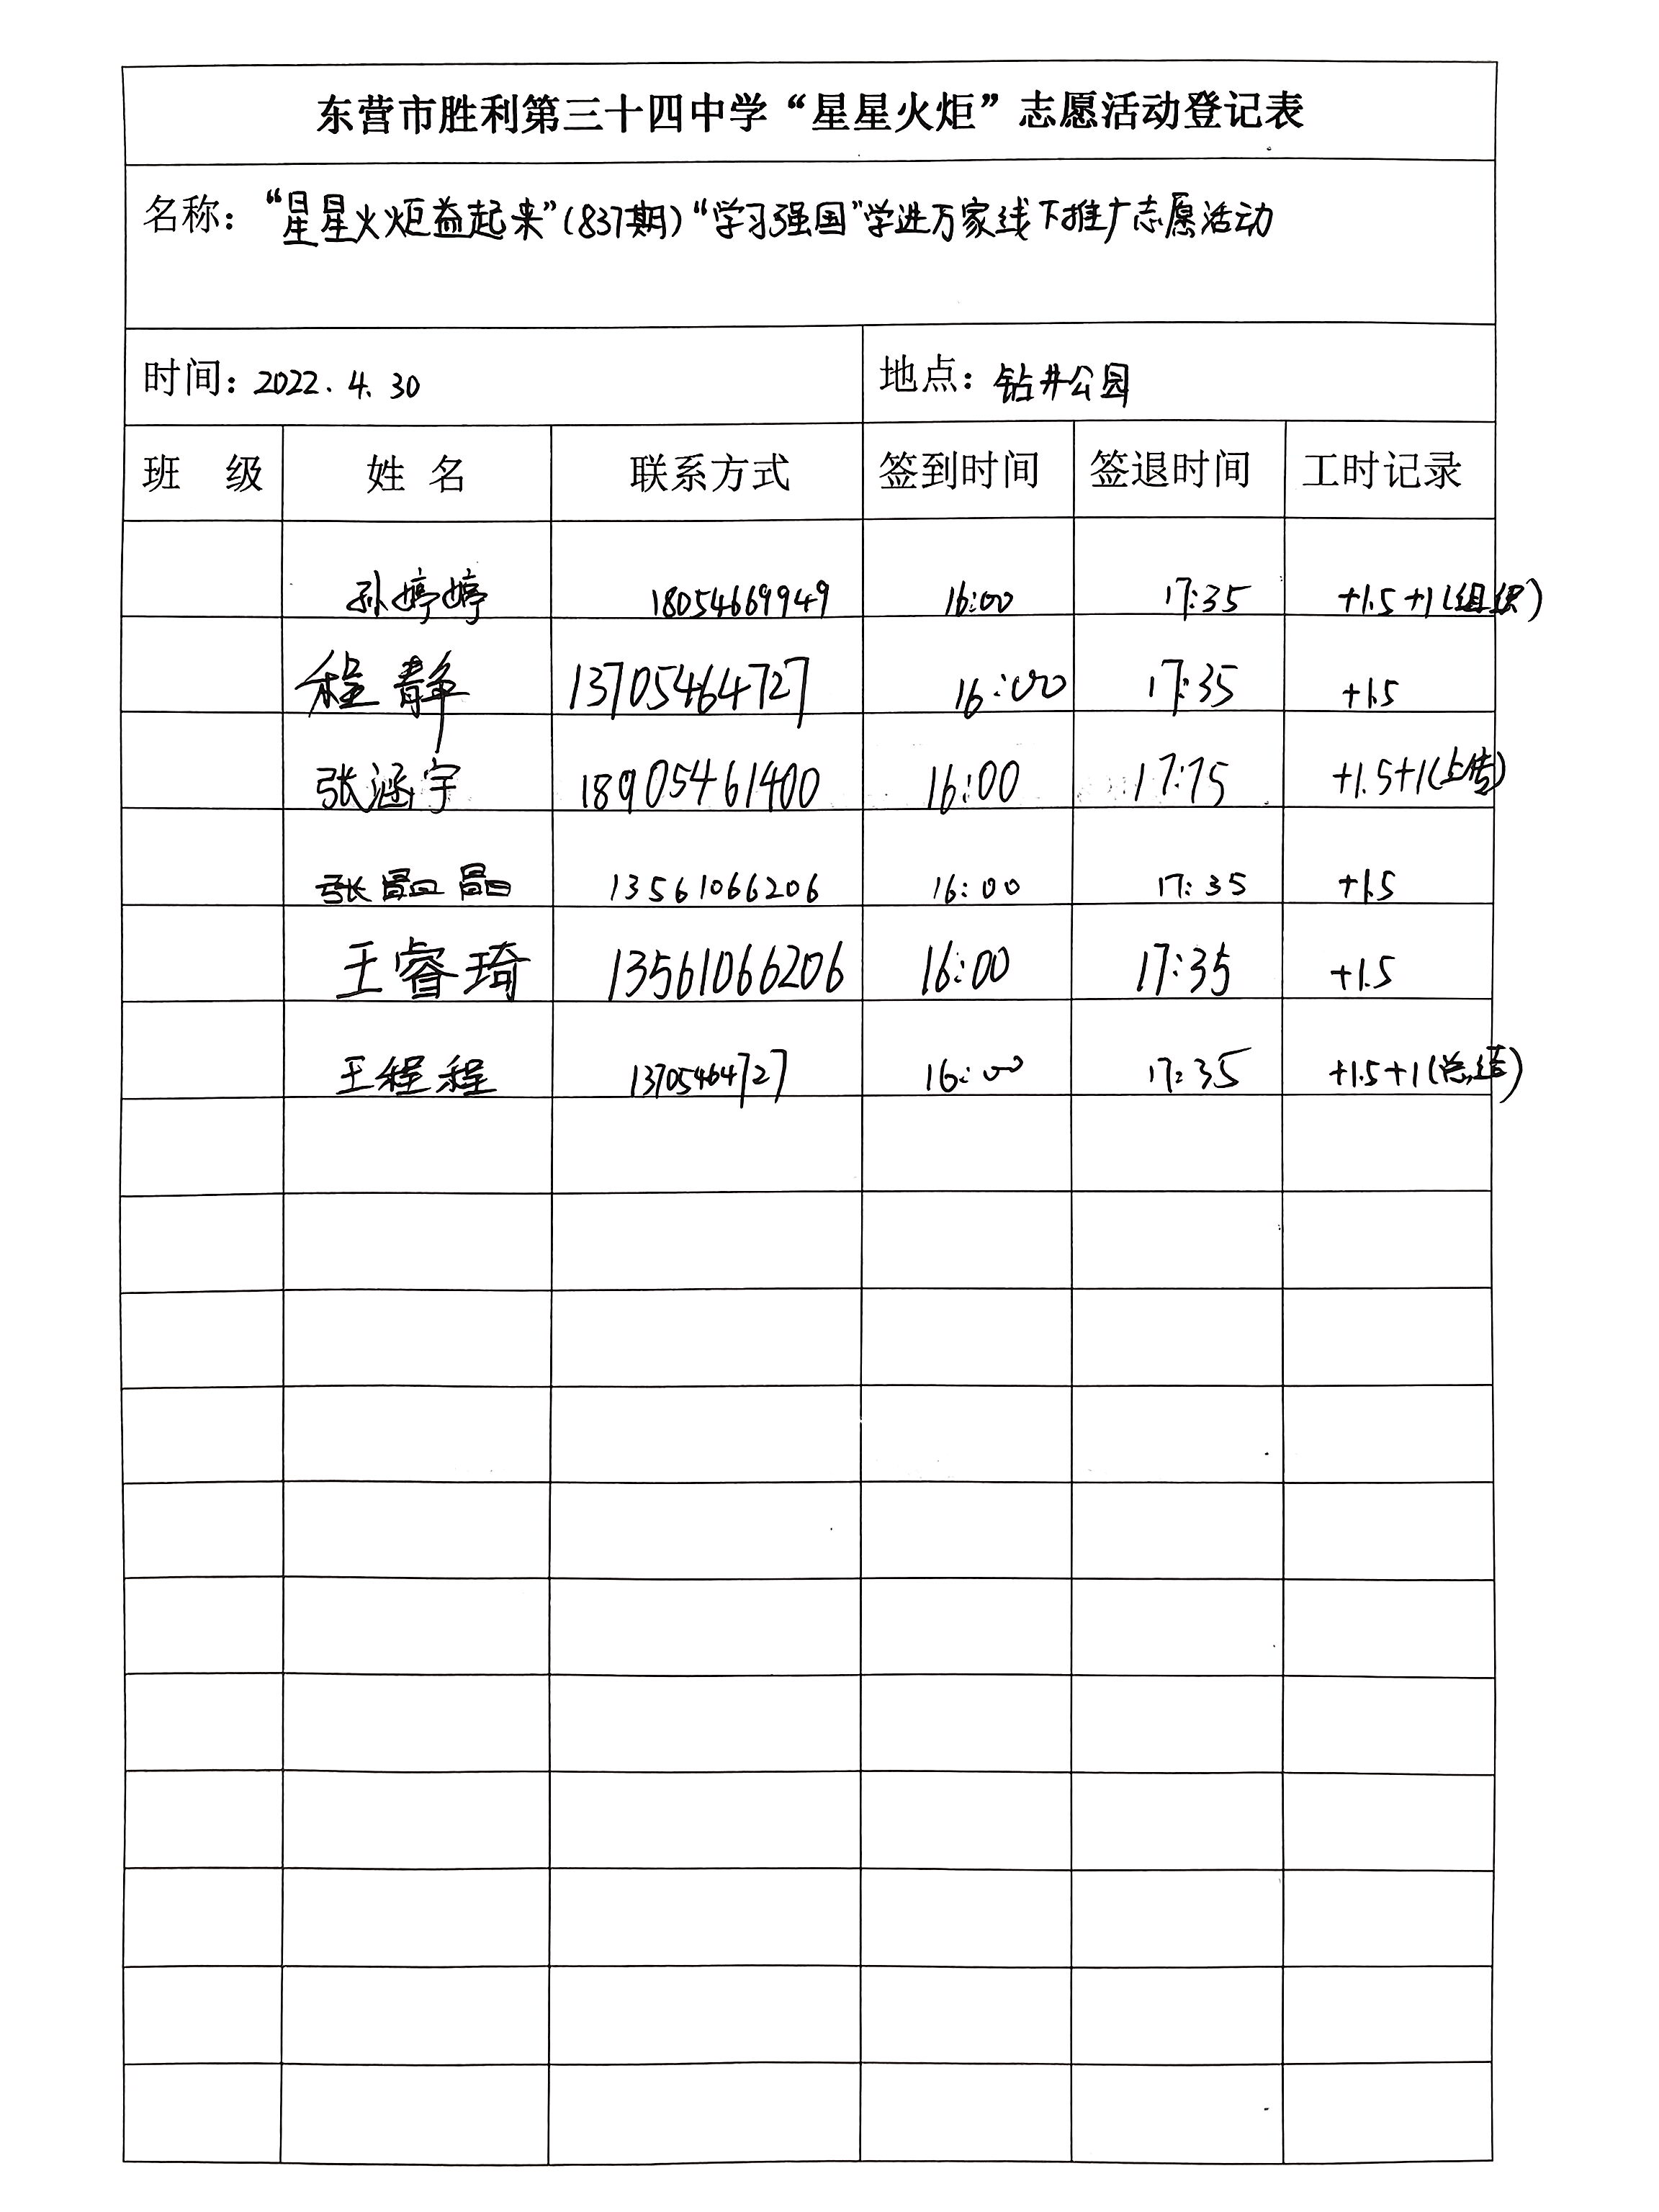 东营市胜利第三十四中学“星星火炬”志愿活动登记表
名称：“星星火炬益起来”（837期）“学习强国”学进万家线下推广志愿活动
时间：2022.4.30 地点：钻井公园
班 级 姓 名 联系方式 签到时间 签退时间 工时记录
孙婷婷 18054669949 16:00 17:35 +1.5+1（组织）
程静 13705464727 16:00 17:35 +1.5
张涵宇 18905461400 16:00 17:75 +1.5+1（上传）
张晶晶 13561066206 16:00 17:35 +1.5
王睿琦 13561066206 16:00 17:35 +1.5
王程程 13705464727 16:00 17:35 +1.5+1（总结）